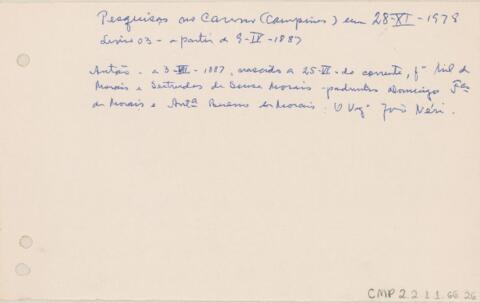 Pesquisas no Carmo (Campinas) em 28-XI-1978
Livro 03 - a partir de 9-IV-1887
Antão - a 3-VII-1887, nascido a 25-VI do corrente, fº Ml de
Morais e Gertrudes de Souza Morais - padrinhos Domingos Fco
de Morais e Antª Bueno de Morais. O Vigº João Néri.
CMP 2.2.1.1.66.26